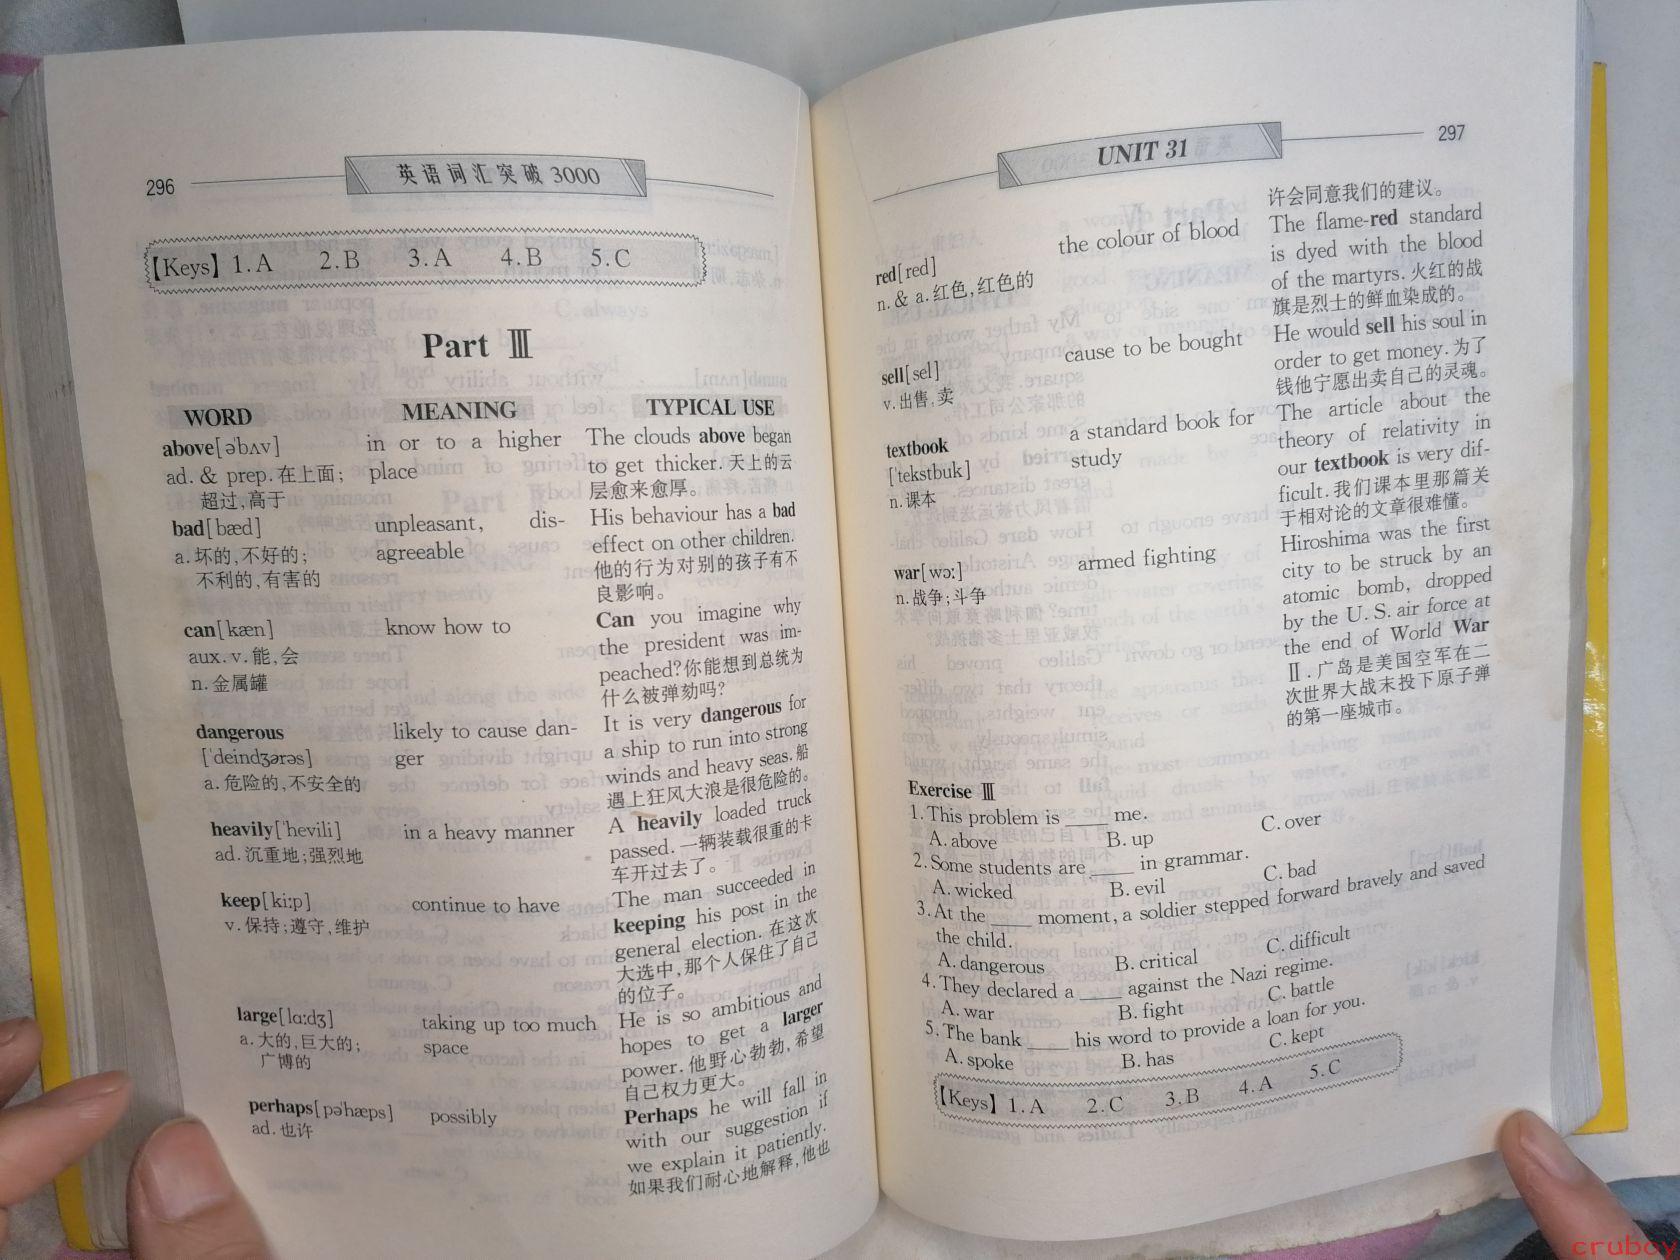 296
英语词汇突破3000
【Keys】 1.A 2.B 3.A 4.B 5.C
Part Ⅲ
WORD MEANING TYPICAL USE
above[ə'bʌv]
ad. & prep.在上面;
超过,高于
in or to a higher
place
The clouds above began
to get thicker.天上的云
层愈来愈厚。
bad[bæd]
a.坏的,不好的;
不利的,有害的
unpleasant, dis-
agreeable
His behaviour has a bad
effect on other children.
他的行为对别的孩子有不
良影响。
can[kæn]
aux.v.能,会
n.金属罐
know how to
Can you imagine why
the president was im-
peached?你能想到总统为
什么被弹劾吗?
dangerous
['deindʒərəs]
a.危险的,不安全的
likely to cause dan-
ger
It is very dangerous for
a ship to run into strong
winds and heavy seas.船
遇上狂风大浪是很危险的。
heavily['hevili]
ad.沉重地;强烈地
in a heavy manner
A heavily loaded truck
passed.一辆装载很重的卡
车开过去了。
keep[ki:p]
v.保持;遵守,维护
continue to have
The man succeeded in
keeping his post in the
general election.在这次
大选中,那个人保住了自己
的位子。
large[lɑ:dʒ]
a.大的,巨大的;
广博的
taking up too much
space
He is so ambitious and
hopes to get a larger
power.他野心勃勃,希望
自己权力更大。
perhaps[pə'hæps]
ad.也许
possibly
Perhaps he will fall in
with our suggestion if
we explain it patiently.
如果我们耐心地解释,他也
UNIT 31
297
许会同意我们的建议。
red[red]
n.& a.红色,红色的
the colour of blood
The flame-red standard
is dyed with the blood
of the martyrs.火红的战
旗是烈士的鲜血染成的。
sell[sel]
v.出售,卖
cause to be bought
He would sell his soul in
order to get money.为了
钱他宁愿出卖自己的灵魂。
textbook
['tekstbuk]
n.课本
a standard book for
study
The article about the
theory of relativity in
our textbook is very dif-
ficult.我们课本里那篇关
于相对论的文章很难懂。
war[wɔ:]
n.战争;斗争
armed fighting
Hiroshima was the first
city to be struck by an
atomic bomb, dropped
by the U.S. air force at
the end of World War
Ⅱ.广岛是美国空军在二
次世界大战末投下原子弹
的第一座城市。
Exercise Ⅲ
1.This problem is ____ me.
A.above B.up C.over
2.Some students are ____ in grammar.
A.wicked B.evil C.bad
3.At the ____ moment, a soldier stepped forward bravely and saved
the child.
A.dangerous B.critical C.difficult
4.They declared a ____ against the Nazi regime.
A.war B.fight C.battle
5.The bank ____ his word to provide a loan for you.
A.spoke B.has C.kept
【Keys】 1.A 2.C 3.B 4.A 5.C
cruboy